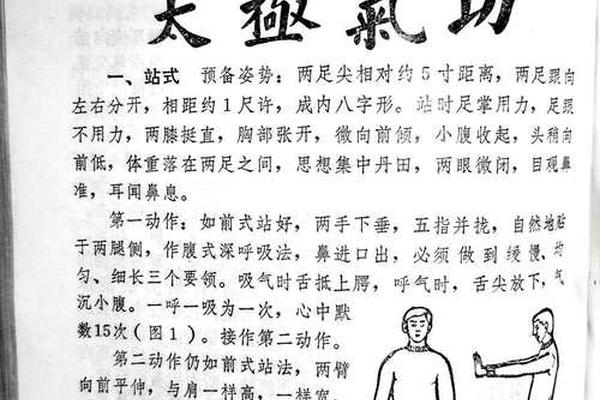 太極氣功
一、站式　预备姿势：两足尖相对约5寸距离，两足跟向
左右分开，相距约1尺许，成内八字形。站时足掌用力，足跟
不用力，两膝挺直，胸部张开，微向前倾，小腹收起，头稍向
前低，体重落在两足之间，思想集中丹田，两眼微闭，目观鼻
准，耳闻鼻息。
第一动作：如前式站好，两手下垂，五指并拢，自然地贴
于两腿侧，作腹式深呼吸法，鼻进口出，必须做到缓慢、均
匀、细长三个要领。吸气时舌抵上腭，呼气时，舌尖放下，气
沉小腹。一呼一吸为一次，心中默
数15次（图1）。接作第二动作。
第二动作仍如前式站法，两臂
向前平伸，与肩一样高，一样宽，